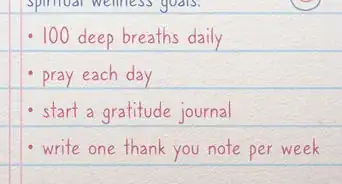 spiritual wellness goals:
• 100 deep breaths daily
• pray each day
• start a gratitude journal
• write one thank you note per week